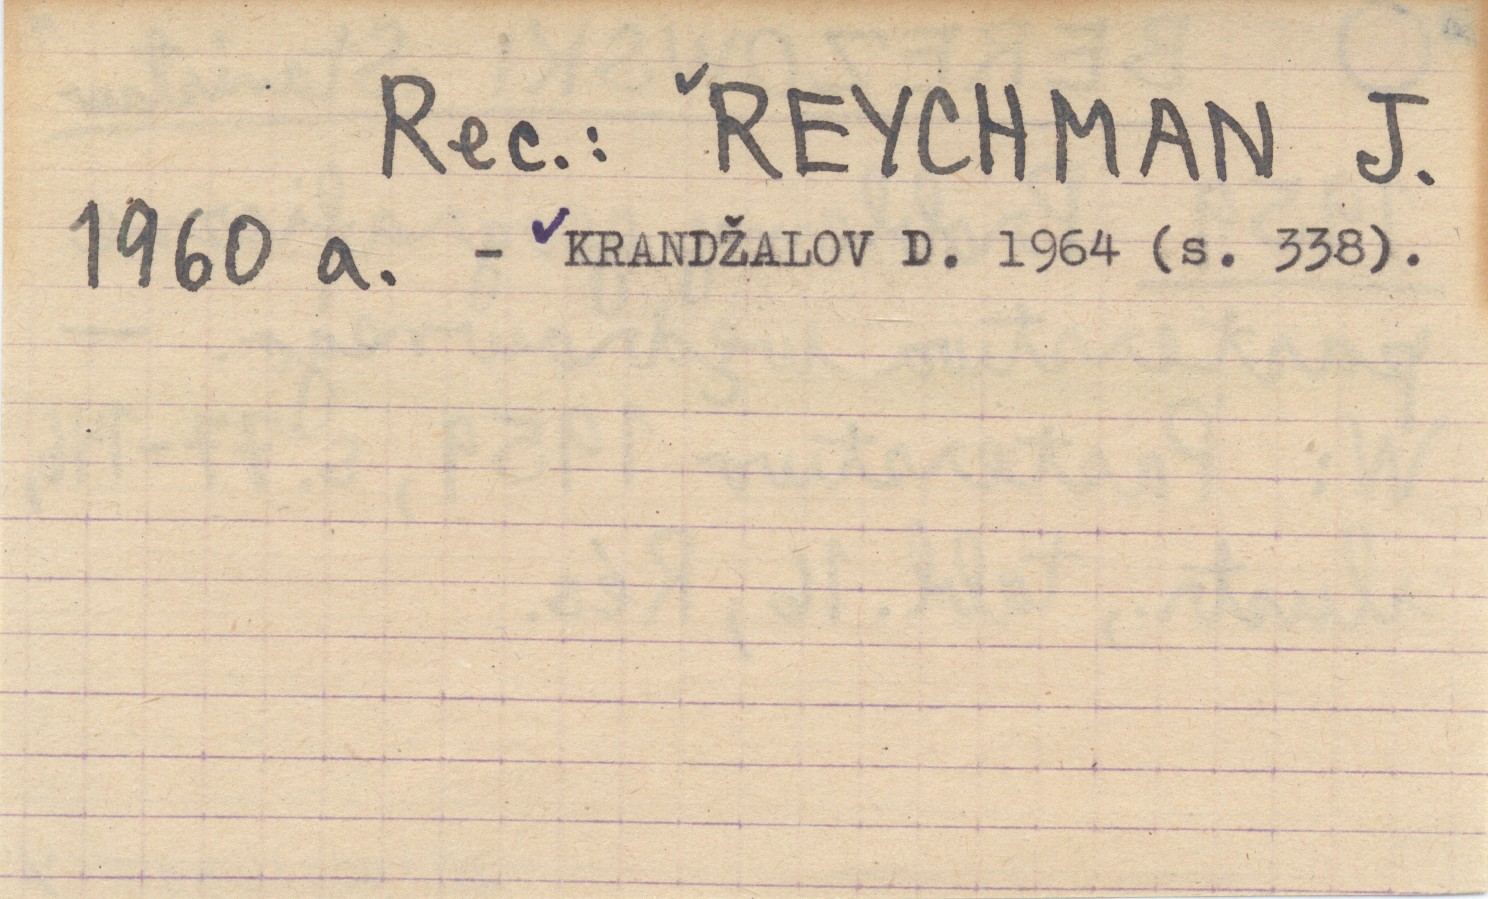 Rec.: ✓REYCHMAN J.
1960 a. - ✓KRANDŽALOV D. 1964 (s. 338).